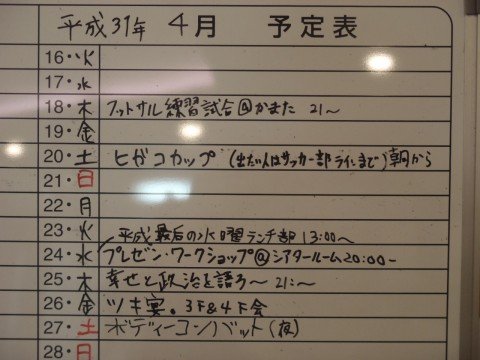 平成31年 4月 予定表
16・火
17・水
18・木 フットサル練習試合@かまた 21〜
19・金
20・土 ヒガコカップ (出たい人はサッカー部ラインまで) 朝から
21・日
22・月
23・火 平成最後の水曜ランチ部 13:00〜
24・水 プレゼン・ワークショップ@シアタールーム20:00-
25・木 幸せと政治を語ろ〜 21:〜
26・金 ツキ宴。3F&4F会
27・土 ボディーコンバット(夜)
28・日